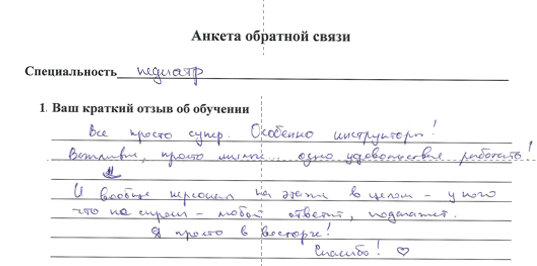 Анкета обратной связи
Специальность педиатр
1. Ваш краткий отзыв об обучении
Все просто супер. Особенно инструктора!
Вежливые, просто милые... одно удовольствие работать!
И вообще персонал на этаже в целом – у кого
что не спроси – любой ответит, подскажет.
Я просто в восторге!
Спасибо! ♡